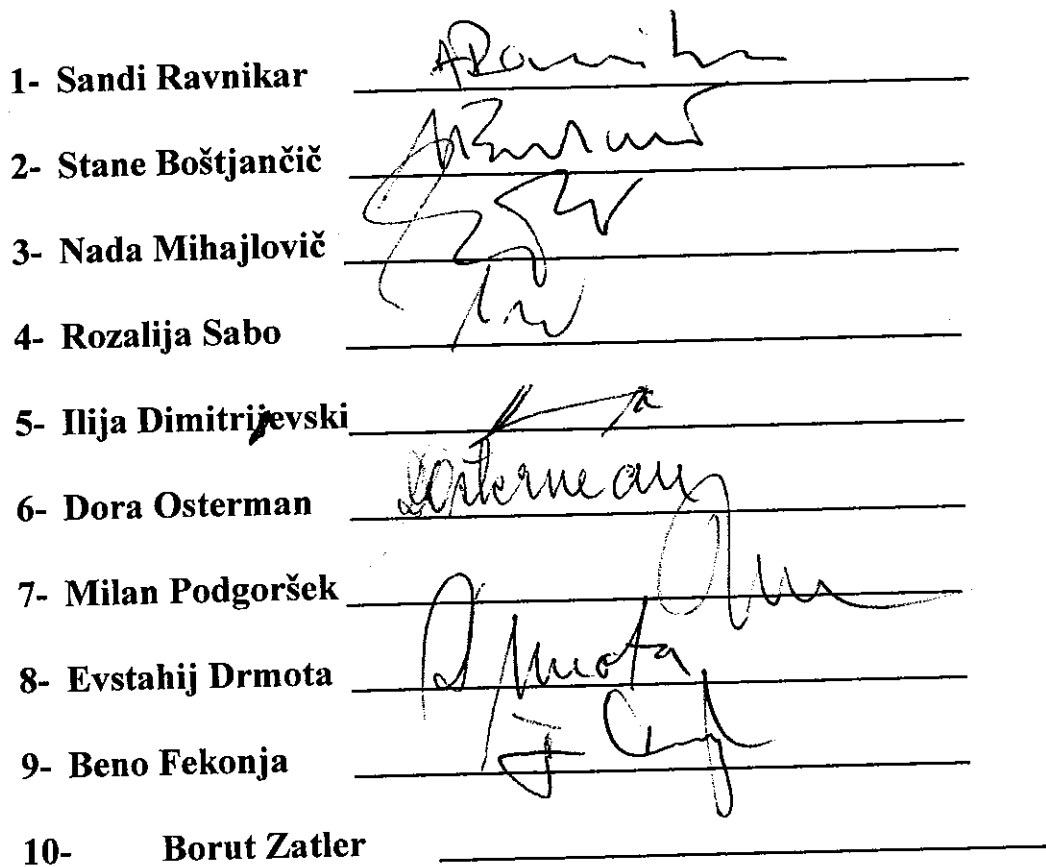 1- Sandi Ravnikar ARavnikar
2- Stane Boštjančič
3- Nada Mihajlovič
4- Rozalija Sabo
5- Ilija Dimitrijevski
6- Dora Osterman DOsterman
7- Milan Podgoršek
8- Evstahij Drmota Drmota
9- Beno Fekonja
10- Borut Zatler